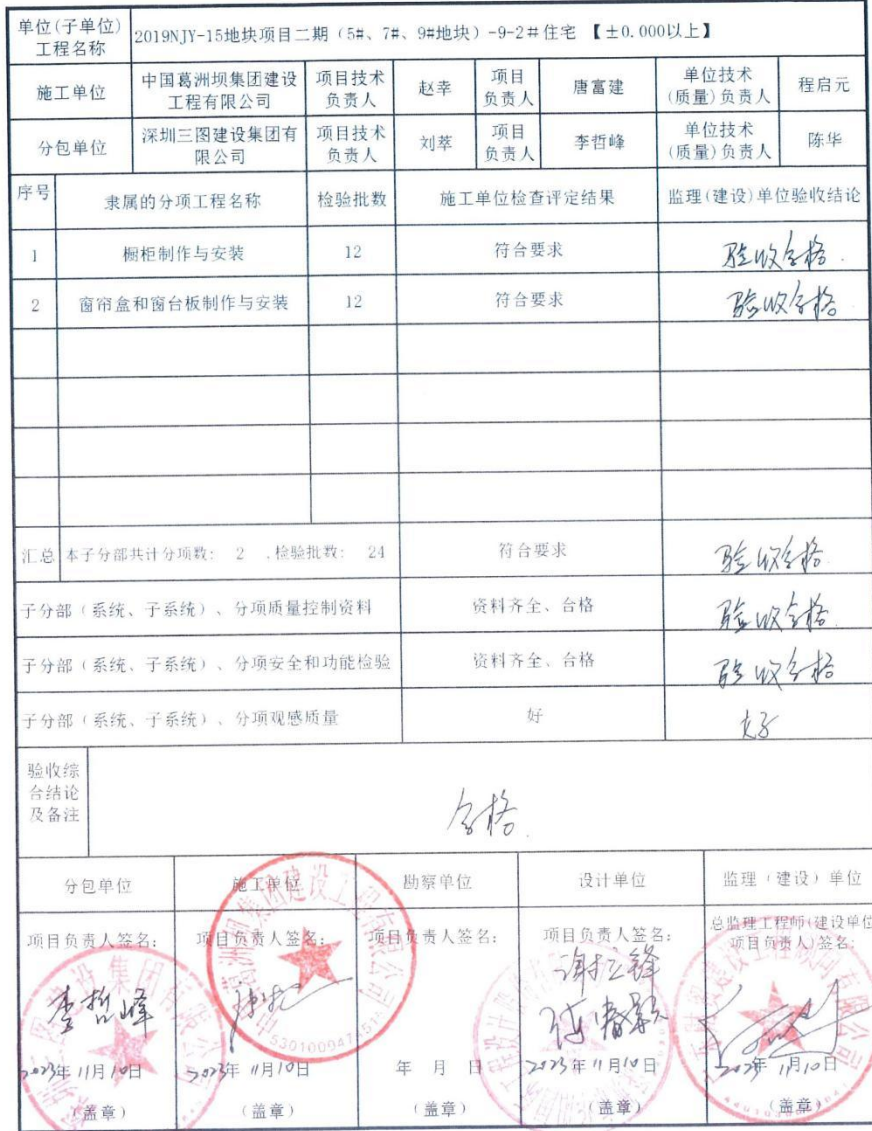 单位(子单位)
工程名称
2019NJY-15地块项目二期（5#、7#、9#地块）-9-2#住宅 【±0.000以上】
施工单位
中国葛洲坝集团建设
工程有限公司
项目技术
负责人
赵幸
项目
负责人
唐富建
单位技术
(质量)负责人
程启元
分包单位
深圳三图建设集团有
限公司
项目技术
负责人
刘萃
项目
负责人
李哲峰
单位技术
(质量)负责人
陈华
序号
隶属的分项工程名称
检验批数
施工单位检查评定结果
监理(建设)单位验收结论
1
橱柜制作与安装
12
符合要求
验收合格.
2
窗帘盒和窗台板制作与安装
12
符合要求
验收合格
汇总
本子分部共计分项数: 2 .检验批数: 24
符合要求
验收合格
子分部（系统、子系统）、分项质量控制资料
资料齐全、合格
验收合格
子分部（系统、子系统）、分项安全和功能检验
资料齐全、合格
验收合格
子分部（系统、子系统）、分项观感质量
好
好
验收综
合结论
及备注
合格.
分包单位
施工单位
勘察单位
设计单位
监理（建设）单位
项目负责人签名:
项目负责人签名:
项目负责人签名:
项目负责人签名:
总监理工程师(建设单位
项目负责人)签名:
李哲峰
2023年 11月10日
2023年 11月10日
年 月 日
2023年 11月10日
2023年 11月10日
（盖章）
（盖章）
（盖章）
（盖章）
（盖章）